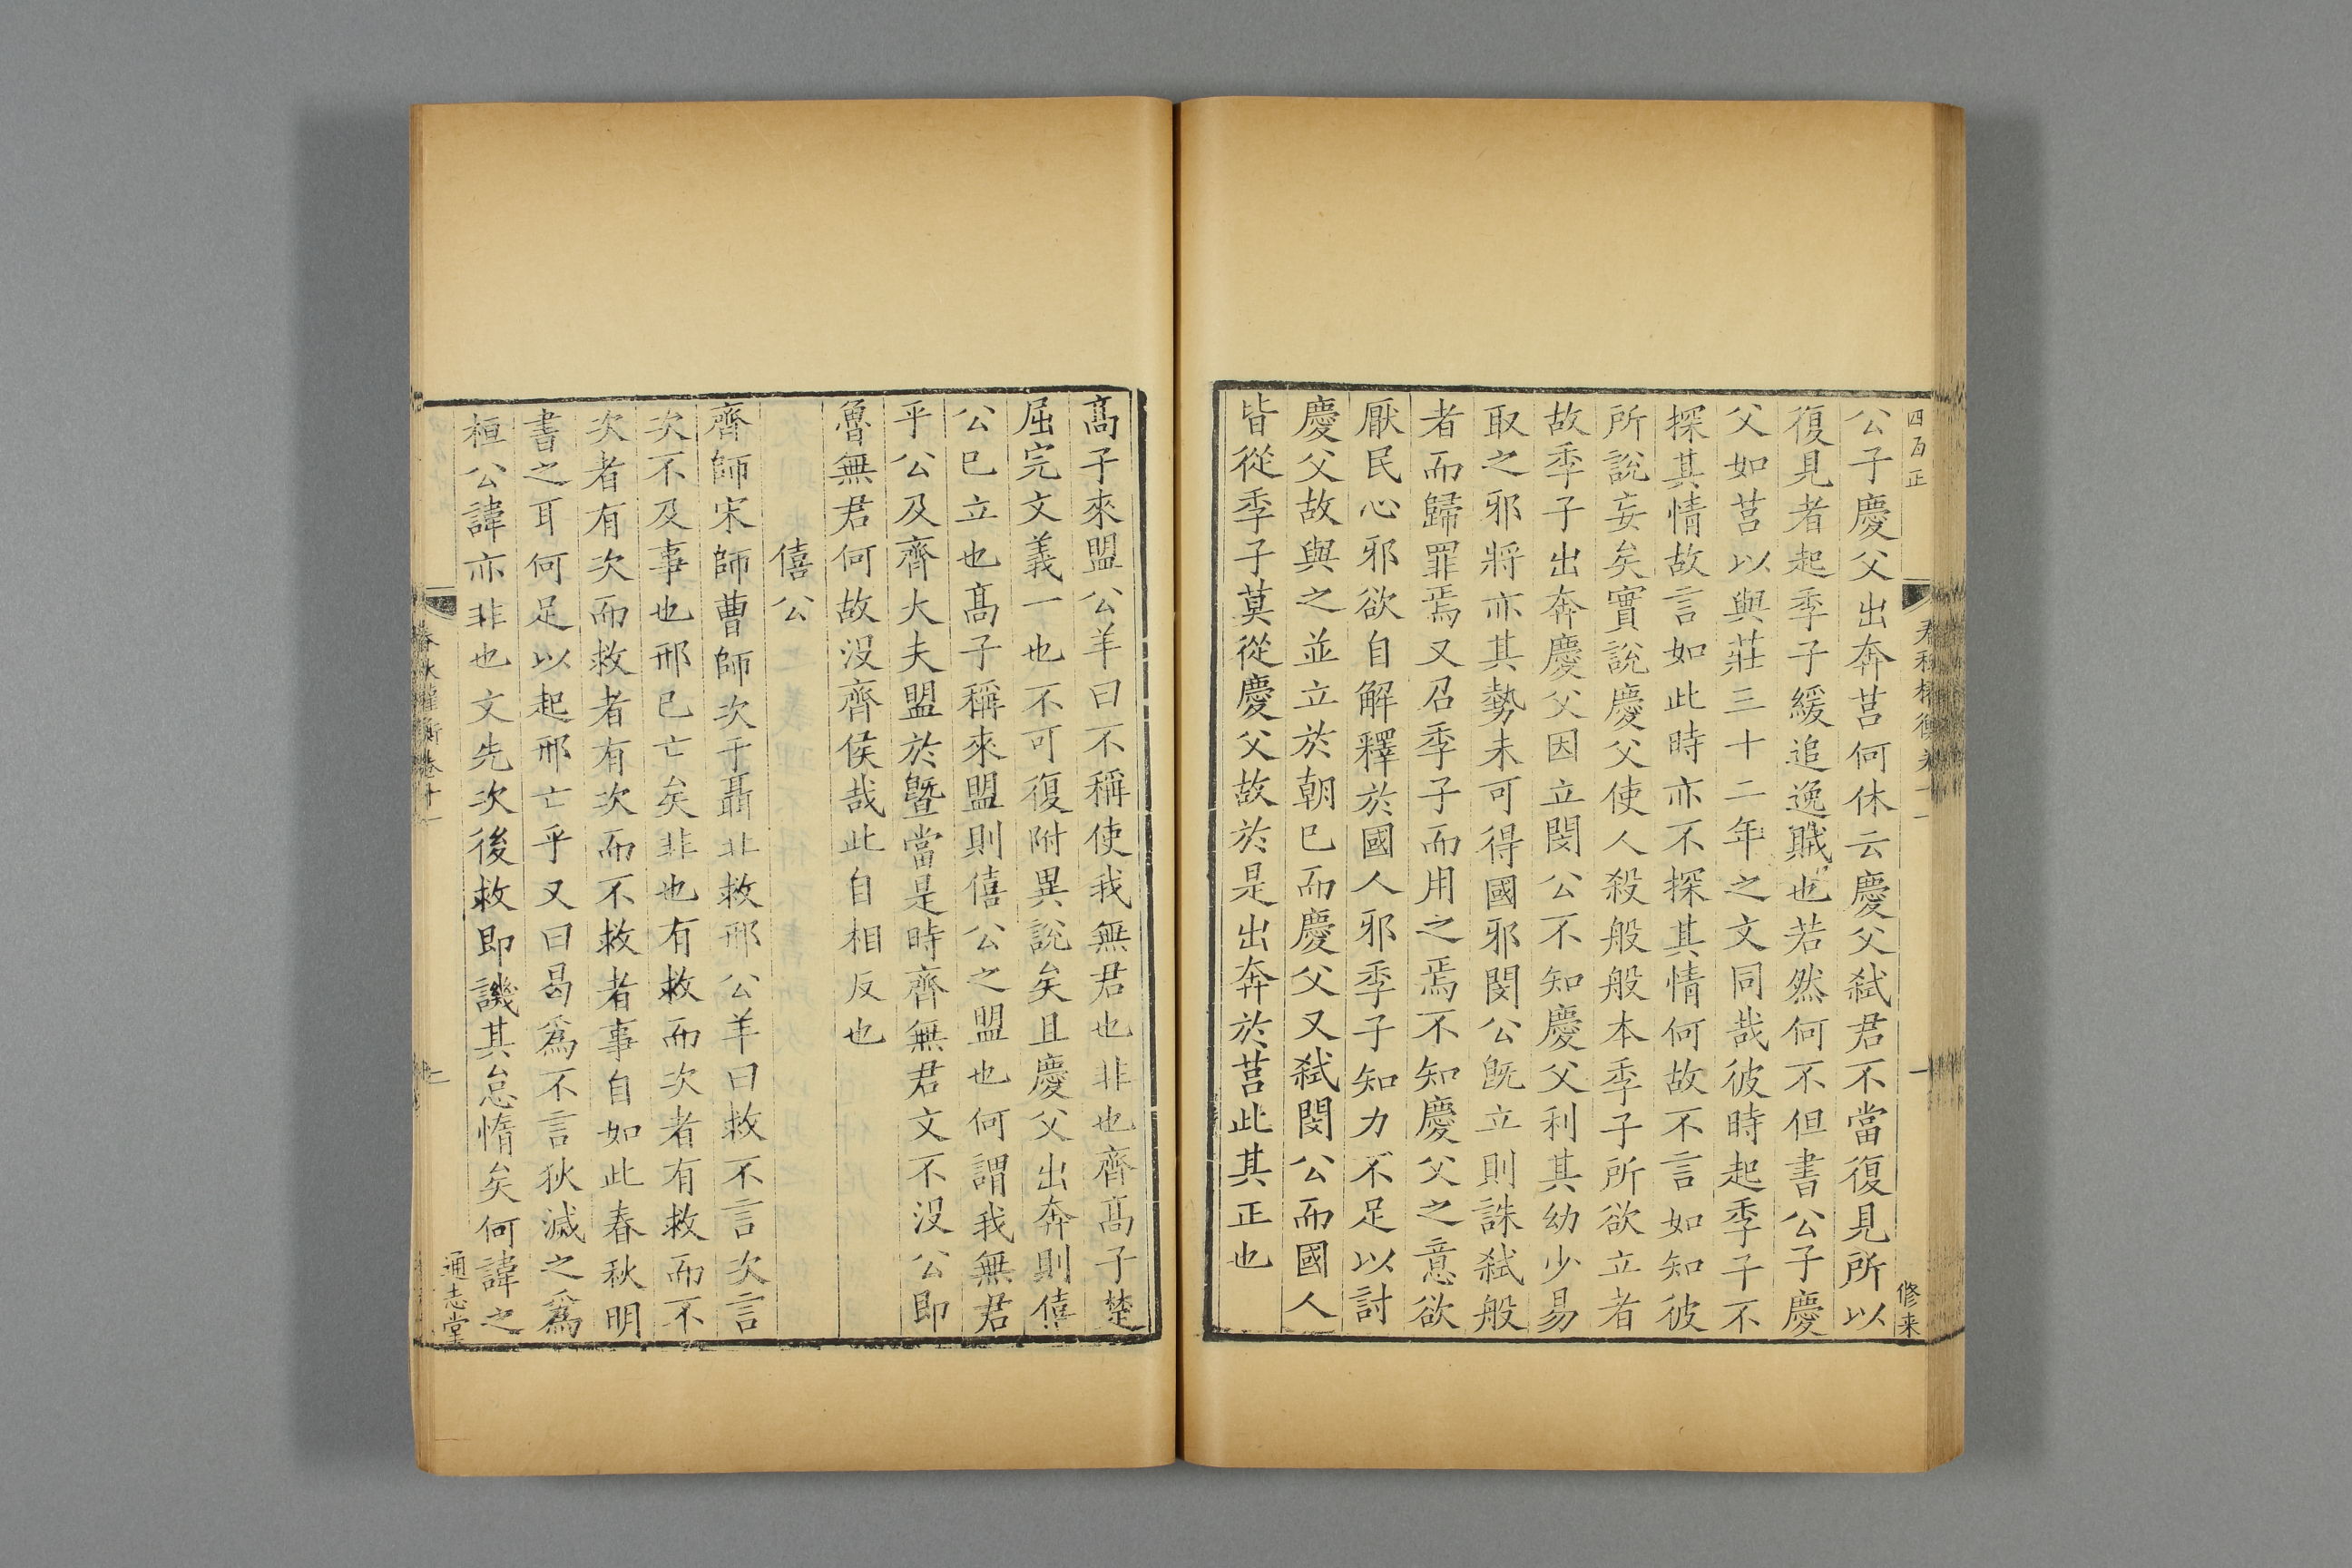 公子慶父出奔莒何休云慶父弑君不當復見所以
復見者起季子緩追逸賊也若然何不但書公子慶
父如莒以與莊三十二年之文同哉彼時起季子不
探其情故言如此時亦不探其情何故不言如知彼
所說妄矣實說慶父使人殺般般本季子所欲立者
故季子出奔慶父因立閔公不知慶父利其幼少易
取之邪將亦其勢未可得國邪閔公旣立則誅弑般
者而歸罪焉又召季子而用之焉不知慶父之意欲
厭民心邪欲自解釋於國人邪季子知力不足以討
慶父故與之並立於朝已而慶父又弑閔公而國人
皆從季子莫從慶父故於是出奔於莒此其正也
修来
髙子來盟公羊曰不稱使我無君也非也齊髙子楚
屈完文義一也不可復附異說矣且慶父出奔則僖
公已立也髙子稱來盟則僖公之盟也何謂我無君
乎公及齊大夫盟於曁當是時齊無君文不没公即
魯無君何故没齊侯哉此自相反也
僖公
齊師宋師曹師次于聶北救邢公羊曰救不言次言
次不及事也邢已亡矣非也有救而次者有救而不
次者有次而救者有次而不救者事自如此春秋明
書之耳何足以起邢亡乎又曰曷爲不言狄滅之爲
桓公諱亦非也文先次後救即譏其怠惰矣何諱之
春秋權衡卷十一
二
通志堂